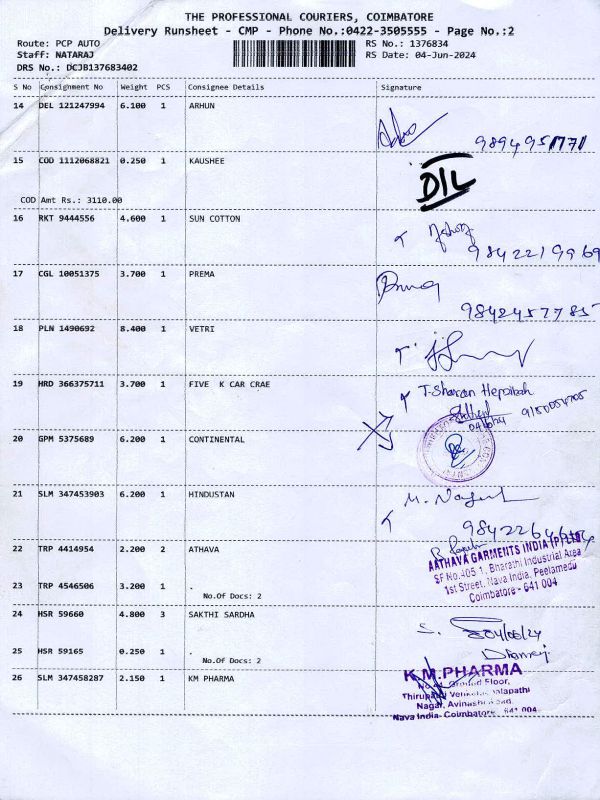 THE PROFESSIONAL COURIERS, COIMBATORE
Delivery Runsheet - CMP - Phone No.:0422-3505555 - Page No.:2
Route: PCP AUTO RS No.: 1376834
Staff: NATARAJ RS Date: 04-Jun-2024
DRS No.: DCJB137683402
S No Consignment No Weight PCS Consignee Details Signature
14 DEL 121247994 6.100 1 ARHUN
9894951771
15 COD 1112068821 0.250 1 KAUSHEE
D/L
COD Amt Rs.: 3110.00
16 RKT 9444556 4.600 1 SUN COTTON
9842219969
17 CGL 10051375 3.700 1 PREMA
9842457785
18 PLN 1490692 8.400 1 VETRI
19 HRD 366375711 3.700 1 FIVE K CAR CRAE
T-Sharan Hepzibah
04/6/24
20 GPM 5375689 6.200 1 CONTINENTAL
21 SLM 347453903 6.200 1 HINDUSTAN
22 TRP 4414954 2.200 2 ATHAVA
AATHAVA GARMENTS INDIA (P) LTD
SF No.405 1, Bharathi Industrial Area
1st Street, Nava India, Peelamedu
Coimbatore - 641 004
23 TRP 4546506 3.200 1 .
No.Of Docs: 2
24 HSR 59660 4.800 3 SAKTHI SARDHA
S. 04/06/24
25 HSR 59165 0.250 1 .
No.Of Docs: 2
26 SLM 347458287 2.150 1 KM PHARMA
K.M.PHARMA
Ground Floor,
Nagar, Avinashi Road,
Nava India- Coimbatore - 641 004